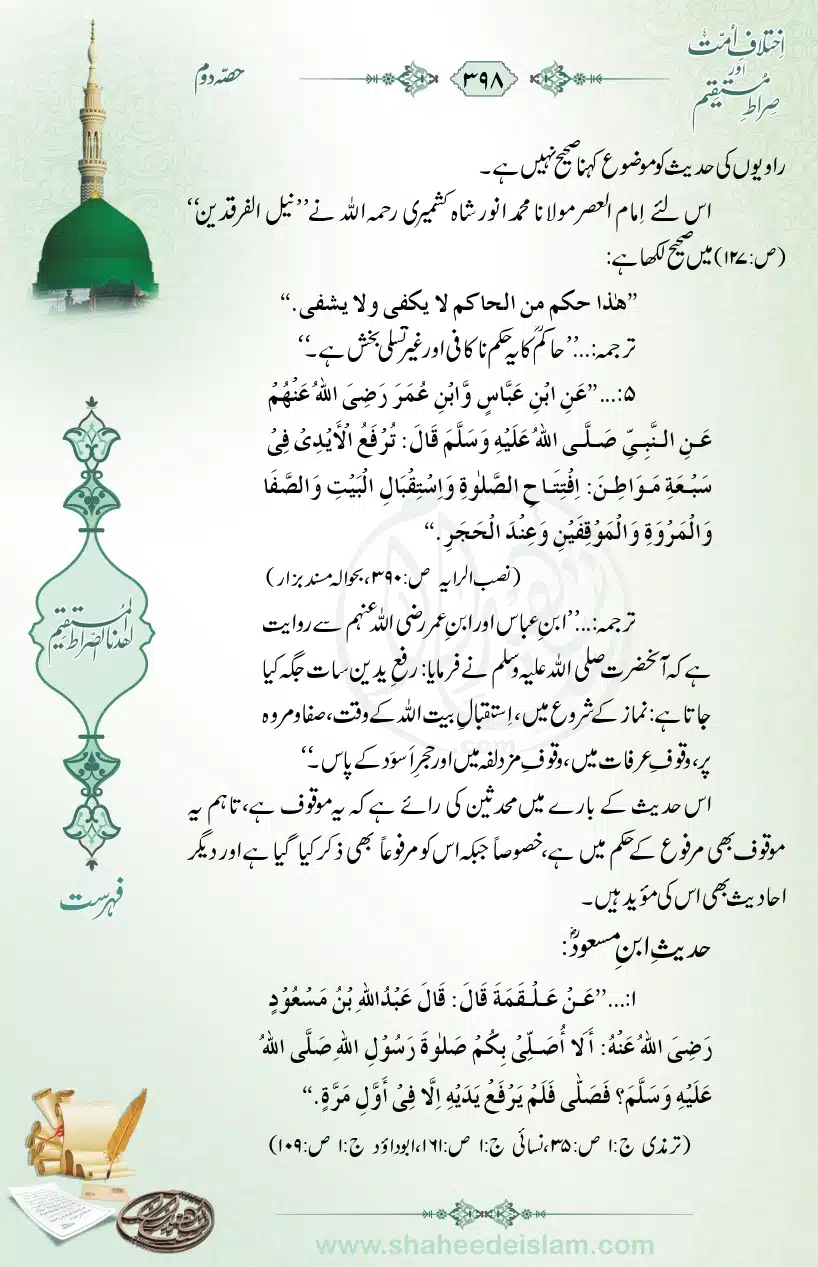 اِختلافِ اُمّت
اور
صِراطِ مُستقیم
۳۹۸
حصّہ دوم
راویوں کی حدیث کو موضوع کہنا صحیح نہیں ہے۔
اس لئے اِمام العصر مولانا محمد انور شاہ کشمیری رحمہ اللہ نے ’’نیل الفرقدین‘‘
(ص:۱۲۷) میں صحیح لکھا ہے:
”ھٰذا حکم من الحاکم لا یکفی ولا یشفی.“
ترجمہ:...’’حاکمؒ کا یہ حکم ناکافی اور غیرتسلی بخش ہے۔‘‘
۵:...”عَنِ ابْنِ عَبَّاسٍ وَّابْنِ عُمَرَ رَضِیَ اللهُ عَنْھُمْ
عَنِ النَّبِیِّ صَلَّی اللهُ عَلَیْهِ وَسَلَّمَ قَالَ: تُرْفَعُ الْأَیْدِیْ فِیْ
سَبْعَةِ مَوَاطِنَ: اِفْتِتَاحِ الصَّلٰوةِ وَاِسْتِقْبَالِ الْبَیْتِ وَالصَّفَا
وَالْمَرْوَةِ وَالْمَوْقِفَیْنِ وَعِنْدَ الْحَجَرِ.“
(نصب الرایہ ص:۳۹۰، بحوالہ مسند بزار)
ترجمہ:...’’ابنِ عباس اور ابنِ عمر رضی اللہ عنہم سے روایت
ہے کہ آنحضرت صلی اللہ علیہ وسلم نے فرمایا: رفعِ یدین سات جگہ کیا
جاتا ہے: نماز کے شروع میں، اِستقبالِ بیت اللہ کے وقت، صفا و مروہ
پر، وقوفِ عرفات میں، وقوفِ مزدلفہ میں اور حجرِ اَسوَد کے پاس۔‘‘
اس حدیث کے بارے میں محدثین کی رائے ہے کہ یہ موقوف ہے، تاہم یہ
موقوف بھی مرفوع کے حکم میں ہے، خصوصاً جبکہ اس کو مرفوعاً بھی ذکر کیا گیا ہے اور دیگر
احادیث بھی اس کی مؤید ہیں۔
حدیثِ ابنِ مسعودؓ:
۱:...”عَنْ عَلْقَمَةَ قَالَ: قَالَ عَبْدُاللهِ بْنُ مَسْعُوْدٍ
رَضِیَ اللهُ عَنْهُ: أَلَا أُصَلِّیْ بِکُمْ صَلٰوةَ رَسُوْلِ اللهِ صَلَّی اللهُ
عَلَیْهِ وَسَلَّمَ؟ فَصَلّٰی فَلَمْ یَرْفَعْ یَدَیْهِ اِلَّا فِیْ أَوَّلِ مَرَّةٍ.“
(ترمذی ج:۱ ص:۳۵، نسائی ج:۱ ص:۱۶۱، ابوداؤد ج:۱ ص:۱۰۹)
اھدنا الصّراط المُستقیم
فہرست
www.shaheedeislam.com